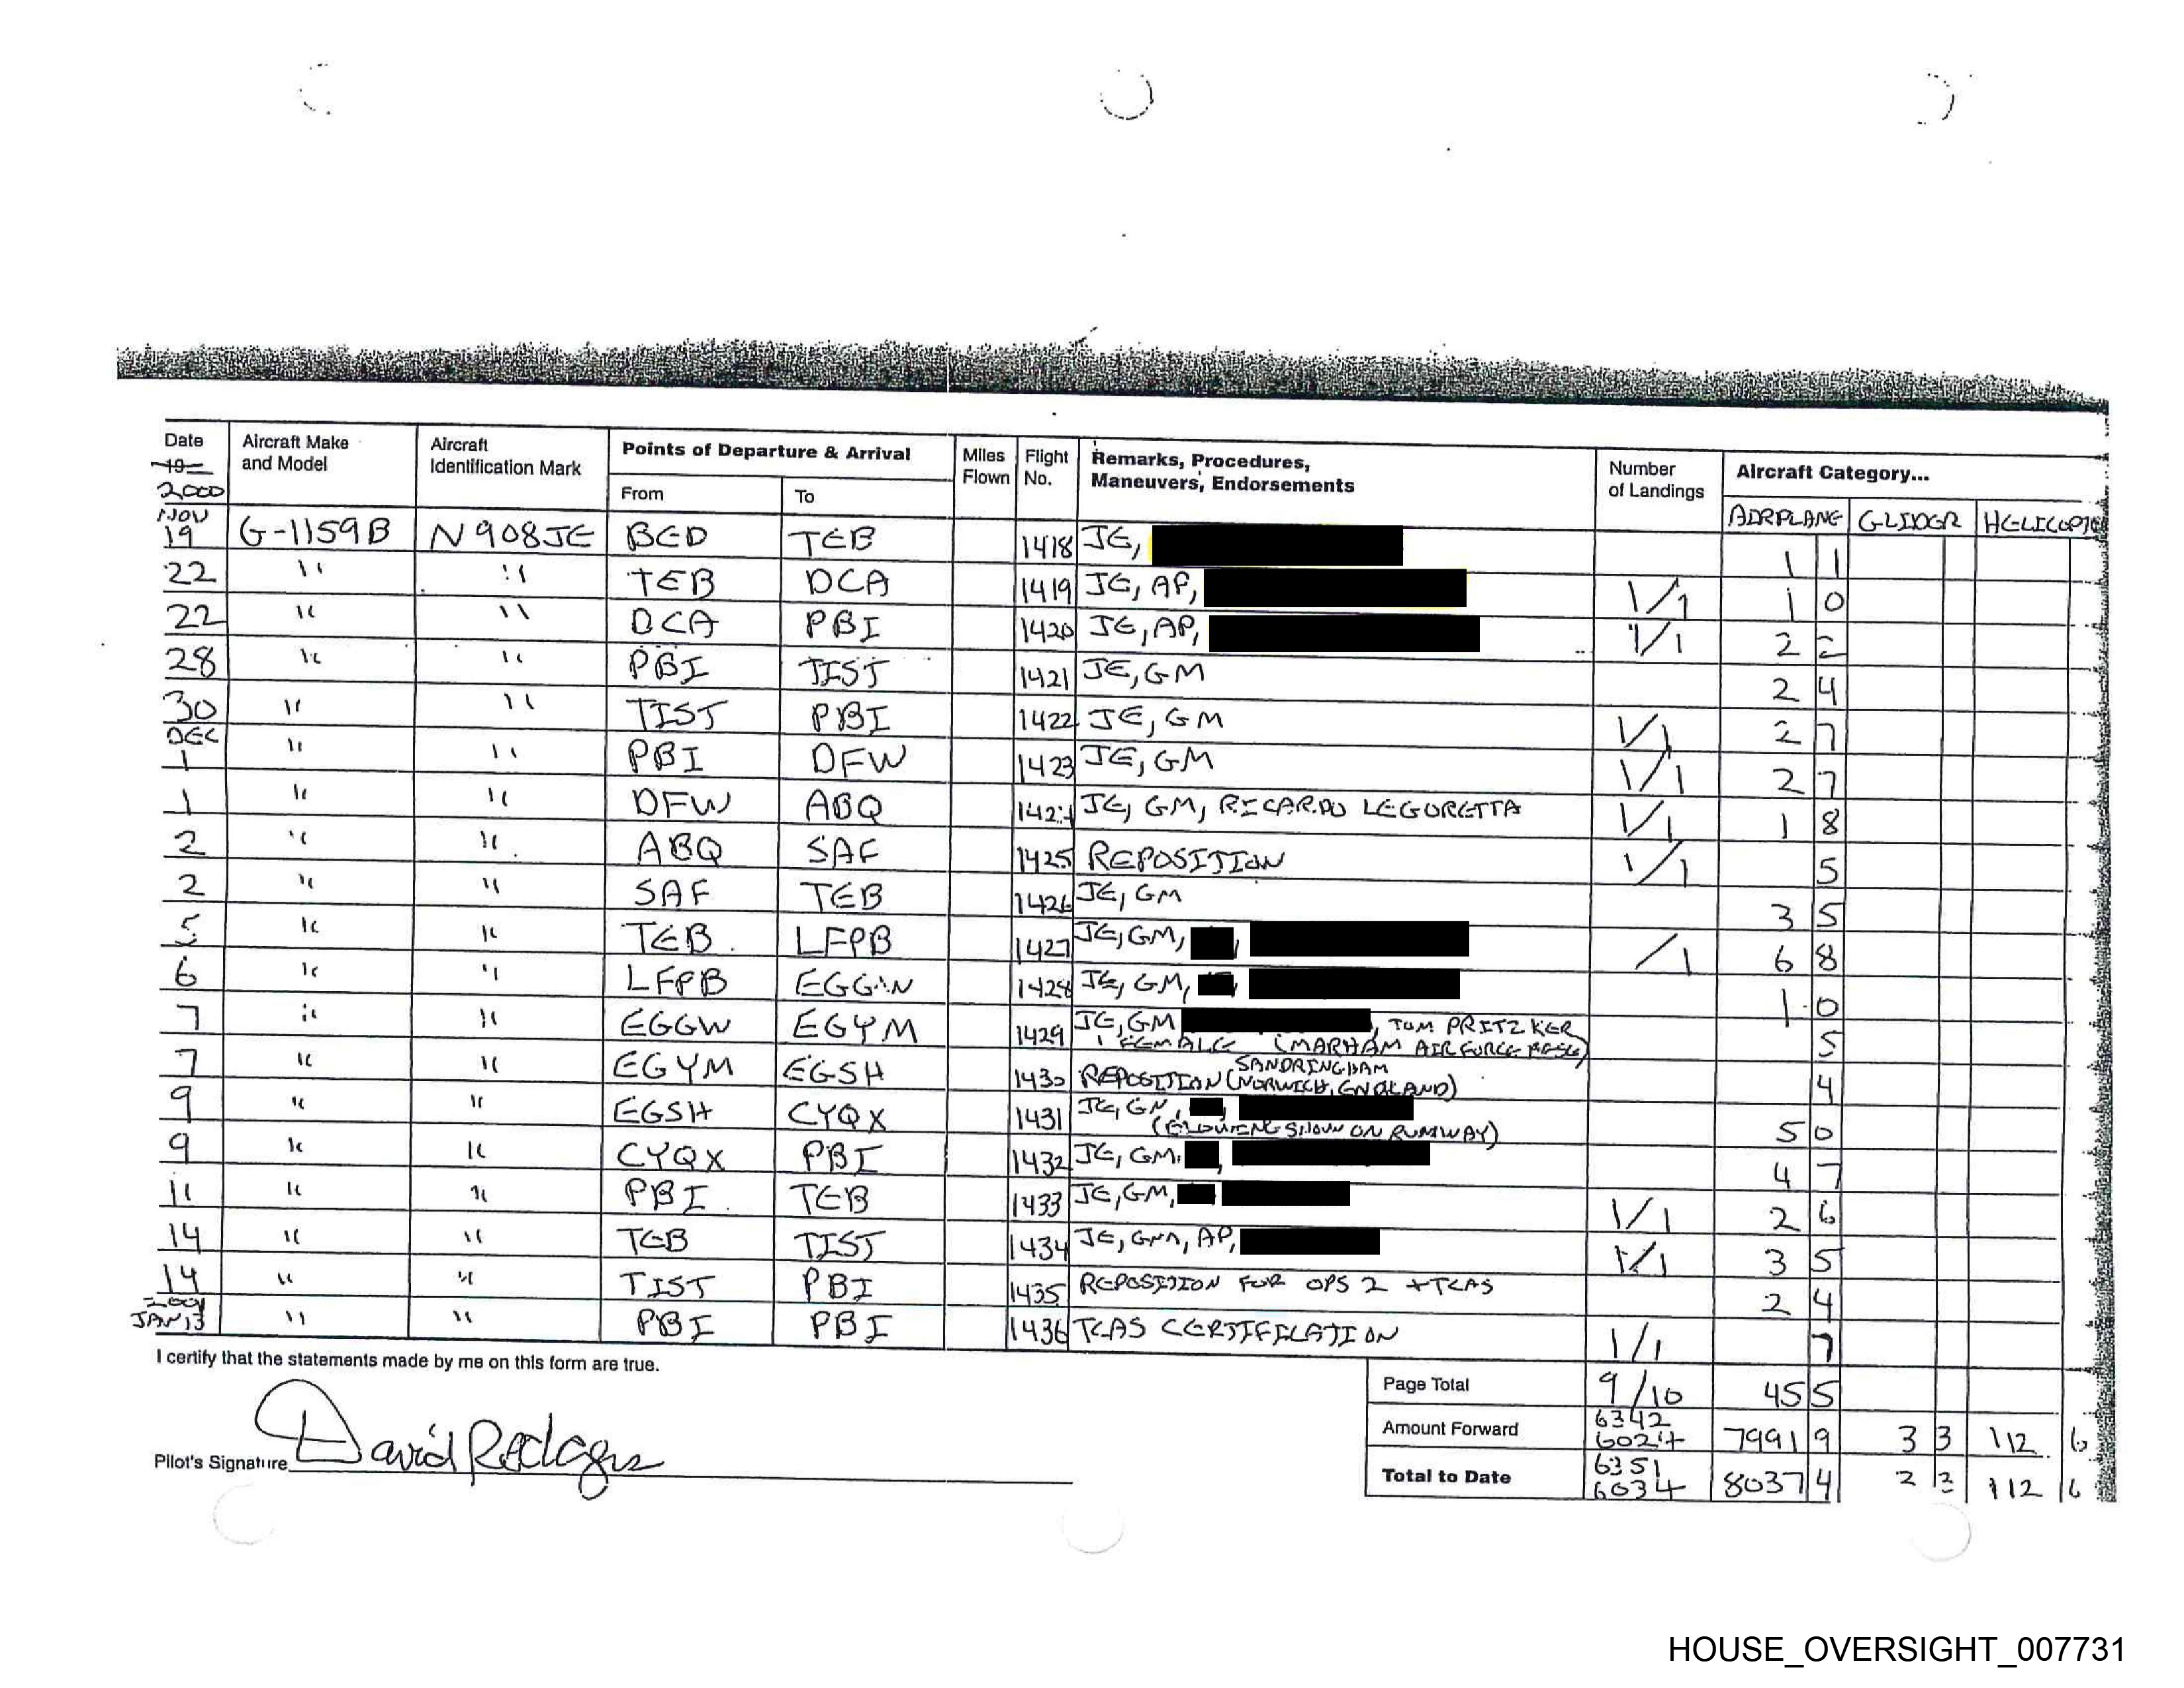 Date Aircraft Make and Model Aircraft Identification Mark Points of Departure & Arrival Miles Flown Flight No. Remarks, Procedures, Maneuvers, Endorsements Number of Landings Aircraft Category...
19
2000 From To AIRPLANE GLIDER HELICOPTER
NOV 19 G-1159B N908JE BED TEB 1418 JE, 1 1
22 " " TEB DCA 1419 JE, AP, 1/1 1 0
22 " " DCA PBI 1420 JE, AP, 1/1 2 2
28 " " PBI TIST 1421 JE, GM 2 4
30 " " TIST PBI 1422 JE, GM 1/1 2 7
DEC 1 " " PBI DFW 1423 JE, GM 1/1 2 7
1 " " DFW ABQ 1424 JE, GM, RICARDO LEGORETTA 1/1 1 8
2 " " ABQ SAF 1425 REPOSITION 1/1 5
2 " " SAF TEB 1426 JE, GM 3 5
5 " " TEB LFPB 1427 JE, GM, /1 6 8
6 " " LFPB EGGW 1428 JE, GM, 1 0
7 " " EGGW EGYM 1429 JE, GM , TOM PRITZKER 5
1 FEMALE (MARHAM AIR FORCE BASE)
SANDRINGHAM
7 " " EGYM EGSH 1430 REPOSITION (NORWICH, ENGLAND) 4
9 " " EGSH CYQX 1431 JE, GM, 5 0
(BLOWING SNOW ON RUNWAY)
9 " " CYQX PBI 1432 JE, GM, 4 7
11 " " PBI TEB 1433 JE, GM, 1/1 2 6
14 " " TEB TIST 1434 JE, GM, AP, 1/1 3 5
14 " " TIST PBI 1435 REPOSITION FOR OPS 2 + TCAS 2 4
2001 JAN 13 " " PBI PBI 1436 TCAS CERTIFICATION 1/1 7
I certify that the statements made by me on this form are true.
Page Total 9/10 45 5
Amount Forward 6342 6024 7991 9 3 3 112 6
Pilot's Signature David Rodgers
Total to Date 6351 6034 8037 4 112 6
HOUSE_OVERSIGHT_007731